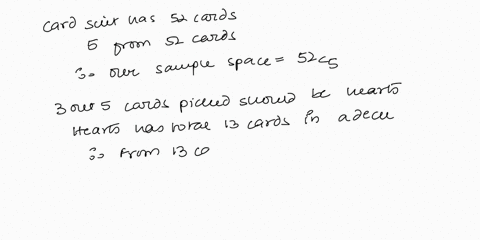 card suit has 52 cards
5 from 52 cards
∴ our sample space = 52c5
3 our 5 cards picked should be hearts
Hearts has total 13 cards in a deck
∴ from 13 co